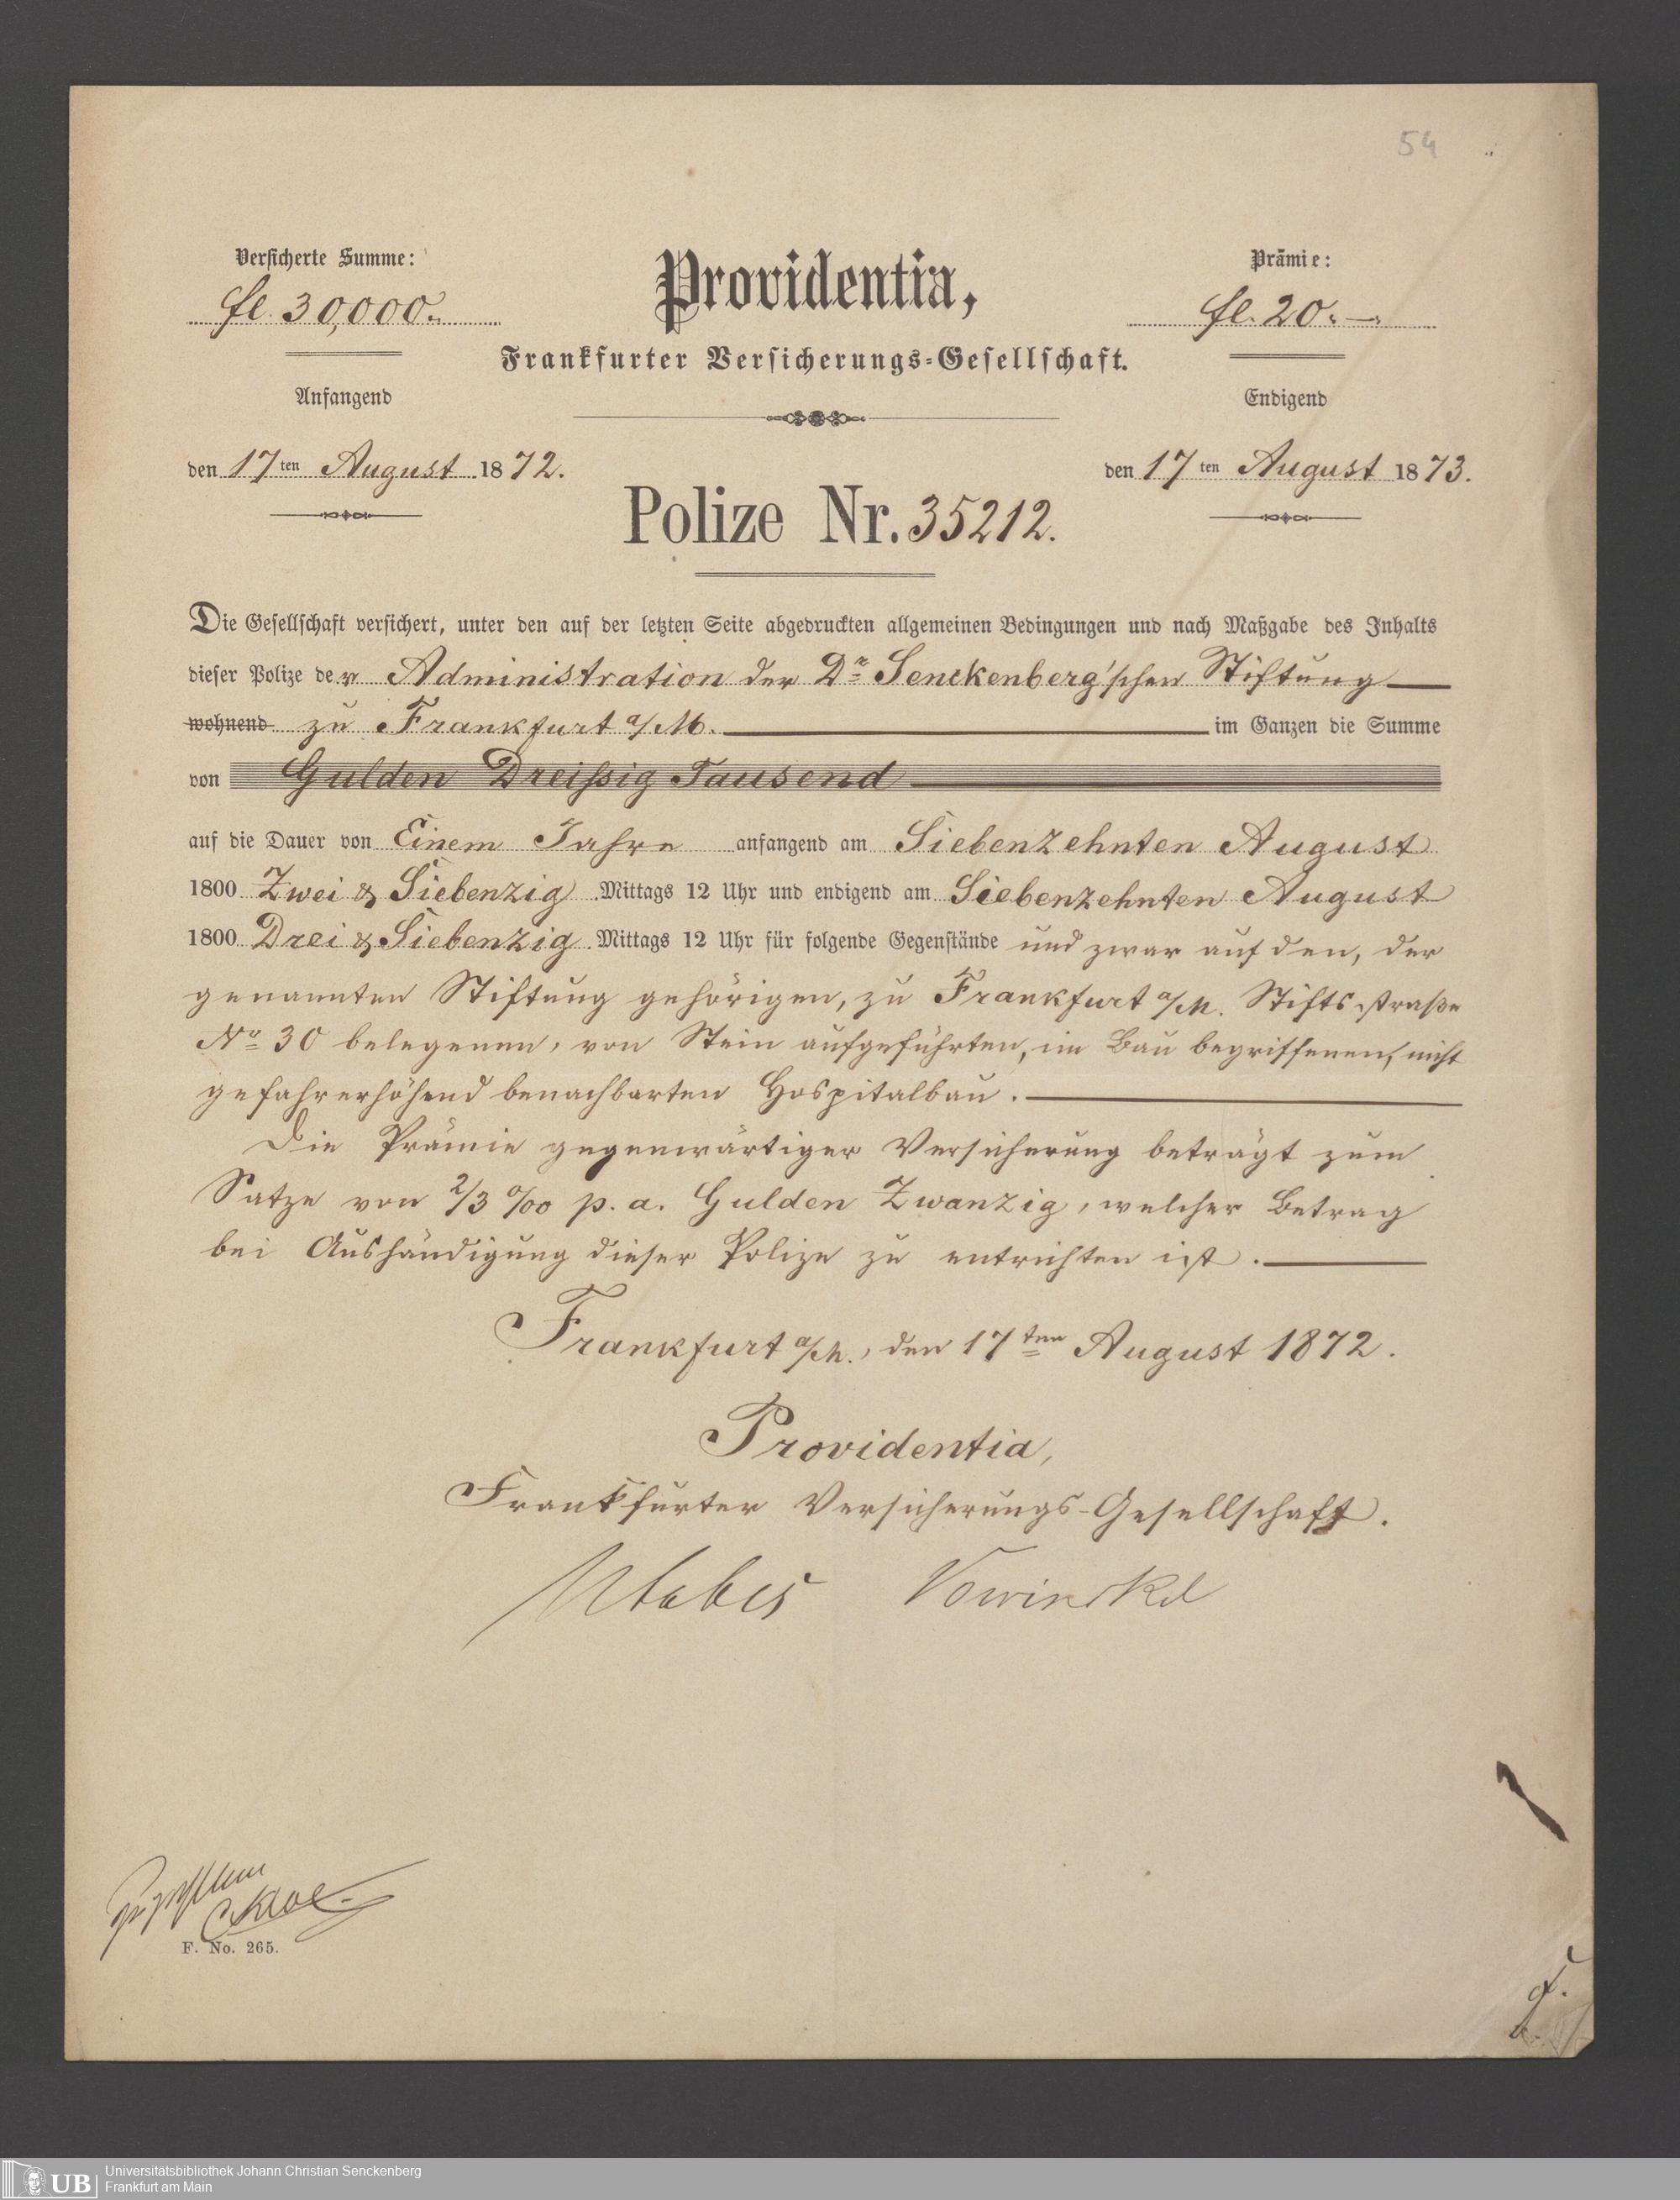 54
Versicherte Summe:
fl. 30,000.
Providentia,
Prämie:
fl. 20.—.
Frankfurter Versicherungs-Gesellschaft.
Anfangend
Endigend
den 17ten August 1872.
den 17ten August 1873.
Polize Nr. 35212.
Die Gesellschaft versichert, unter den auf der letzten Seite abgedruckten allgemeinen Bedingungen und nach Maßgabe des Inhalts
dieser Polize der Administration der Dr. Senckenberg'schen Stiftung
wohnend zu Frankfurt a/M. im Ganzen die Summe
von Gulden Dreissig Tausend
auf die Dauer von Einem Jahre anfangend am Siebenzehnten August
1800 Zwei & Siebenzig Mittags 12 Uhr und endigend am Siebenzehnten August
1800 Drei & Siebenzig Mittags 12 Uhr für folgende Gegenstände und zwar auf den, der
genannten Stiftung gehörigen, zu Frankfurt a/M. Stiftsstraße
No 30 belegenen, von Stein aufgeführten, im Bau begriffenen, nicht
gefahrerhöhend benachbarten Hospitalbau.
Die Prämie gegenwärtiger Versicherung beträgt zum
Satze von 2/3 ‰ p. a. Gulden Zwanzig, welcher Betrag
bei Aushändigung dieser Polize zu entrichten ist.
Frankfurt a/M., den 17ten August 1872.
Providentia,
Frankfurter Versicherungs-Gesellschaft.
Vowinckel
F. No. 265.
UB
Universitätsbibliothek Johann Christian Senckenberg
Frankfurt am Main